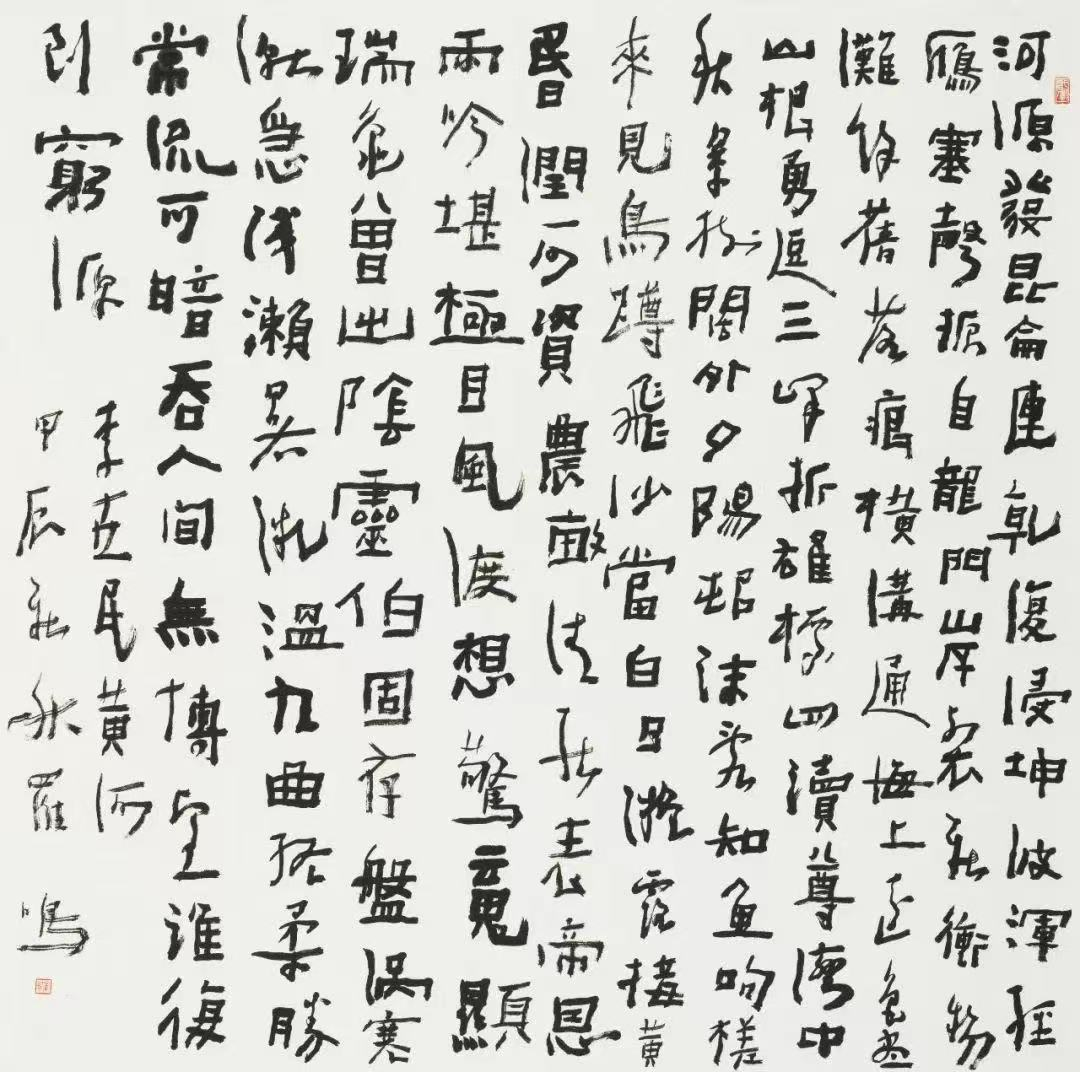 河源發昆侖連乾復浸坤波渾經
鴈塞聲振自龍門岸裂新衝勢
灘餘舊落痕橫溝通海上遠色盡
山根勇逗三峰坼雄標四瀆尊灣中
秋景樹闊外夕陽邨沫亂知魚呴槎
來見鳥蹲飛沙當白日凝霧接黃
昬潤可資農畝清能表帝恩
雨吟堪極目風度想驚魂顯
瑞龜曾出陰靈伯固存盤渦寒
漸急淺瀨暑微溫九曲終柔勝
常流可暗吞人間無博望誰復
到窮源
李世民黃河
甲辰新秋羅鳴